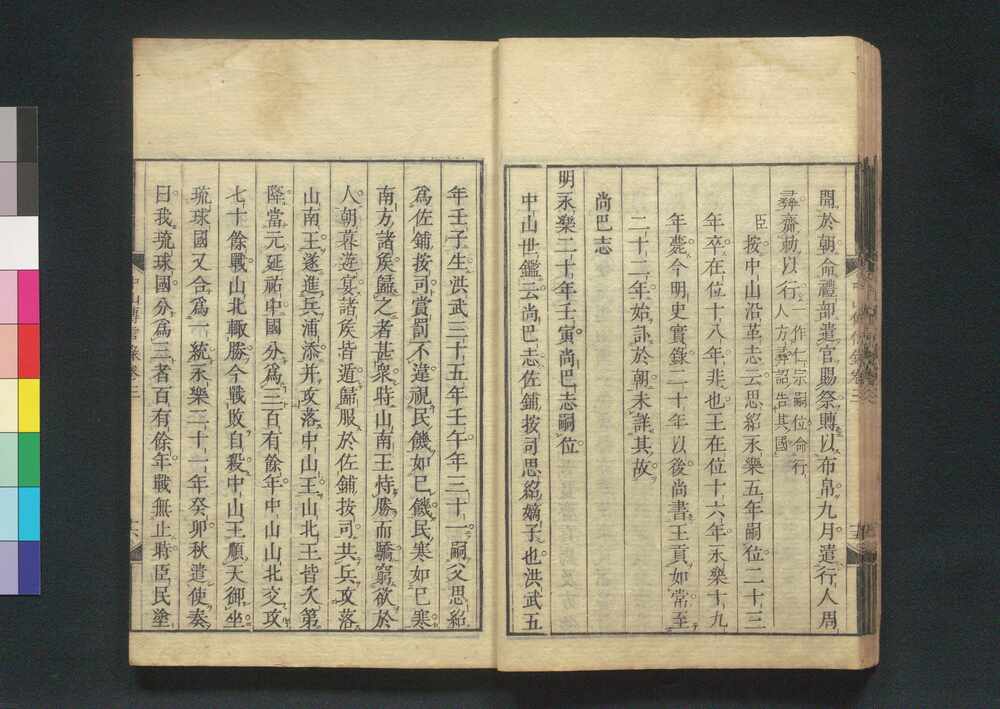 聞於朝命禮部遣官賜祭賻以布帛九月遣行人周
彛齋勅以行一作仁宗嗣位命行
人方彛詔告其國
臣按中山沿革志云思紹永樂五年嗣位二十三
年卒在位十八年非也王在位十六年永樂十九
年薨今明史實錄二十年以後尚書王貢如常至
二十二年始訃於朝未詳其故
明永樂二十年壬寅尚巴志嗣位
尚巴志
中山世鑑云尚巴志佐鋪按司思紹嫡子也洪武五
年壬子生洪武三十五年壬午年三十一嗣父思紹
爲佐鋪按司賞罰不違視民饑如已饑民寒如已寒
南方諸矦歸之者甚衆時山南王恃勝而驕窮欲於
人朝暮遊宴諸矦皆遁歸服於佐鋪按司共兵攻落
山南王遂進兵浦添并攻落中山王山北王皆次第
降當元延祐中國分爲三百有餘年中山山北交攻
七十餘戰山北輙勝今戰敗自殺中山王順天御坐
琉球國又合爲一統永樂二十一年癸卯秋遣使奏
曰我琉球國分爲三者百有餘年戰無止時臣民塗